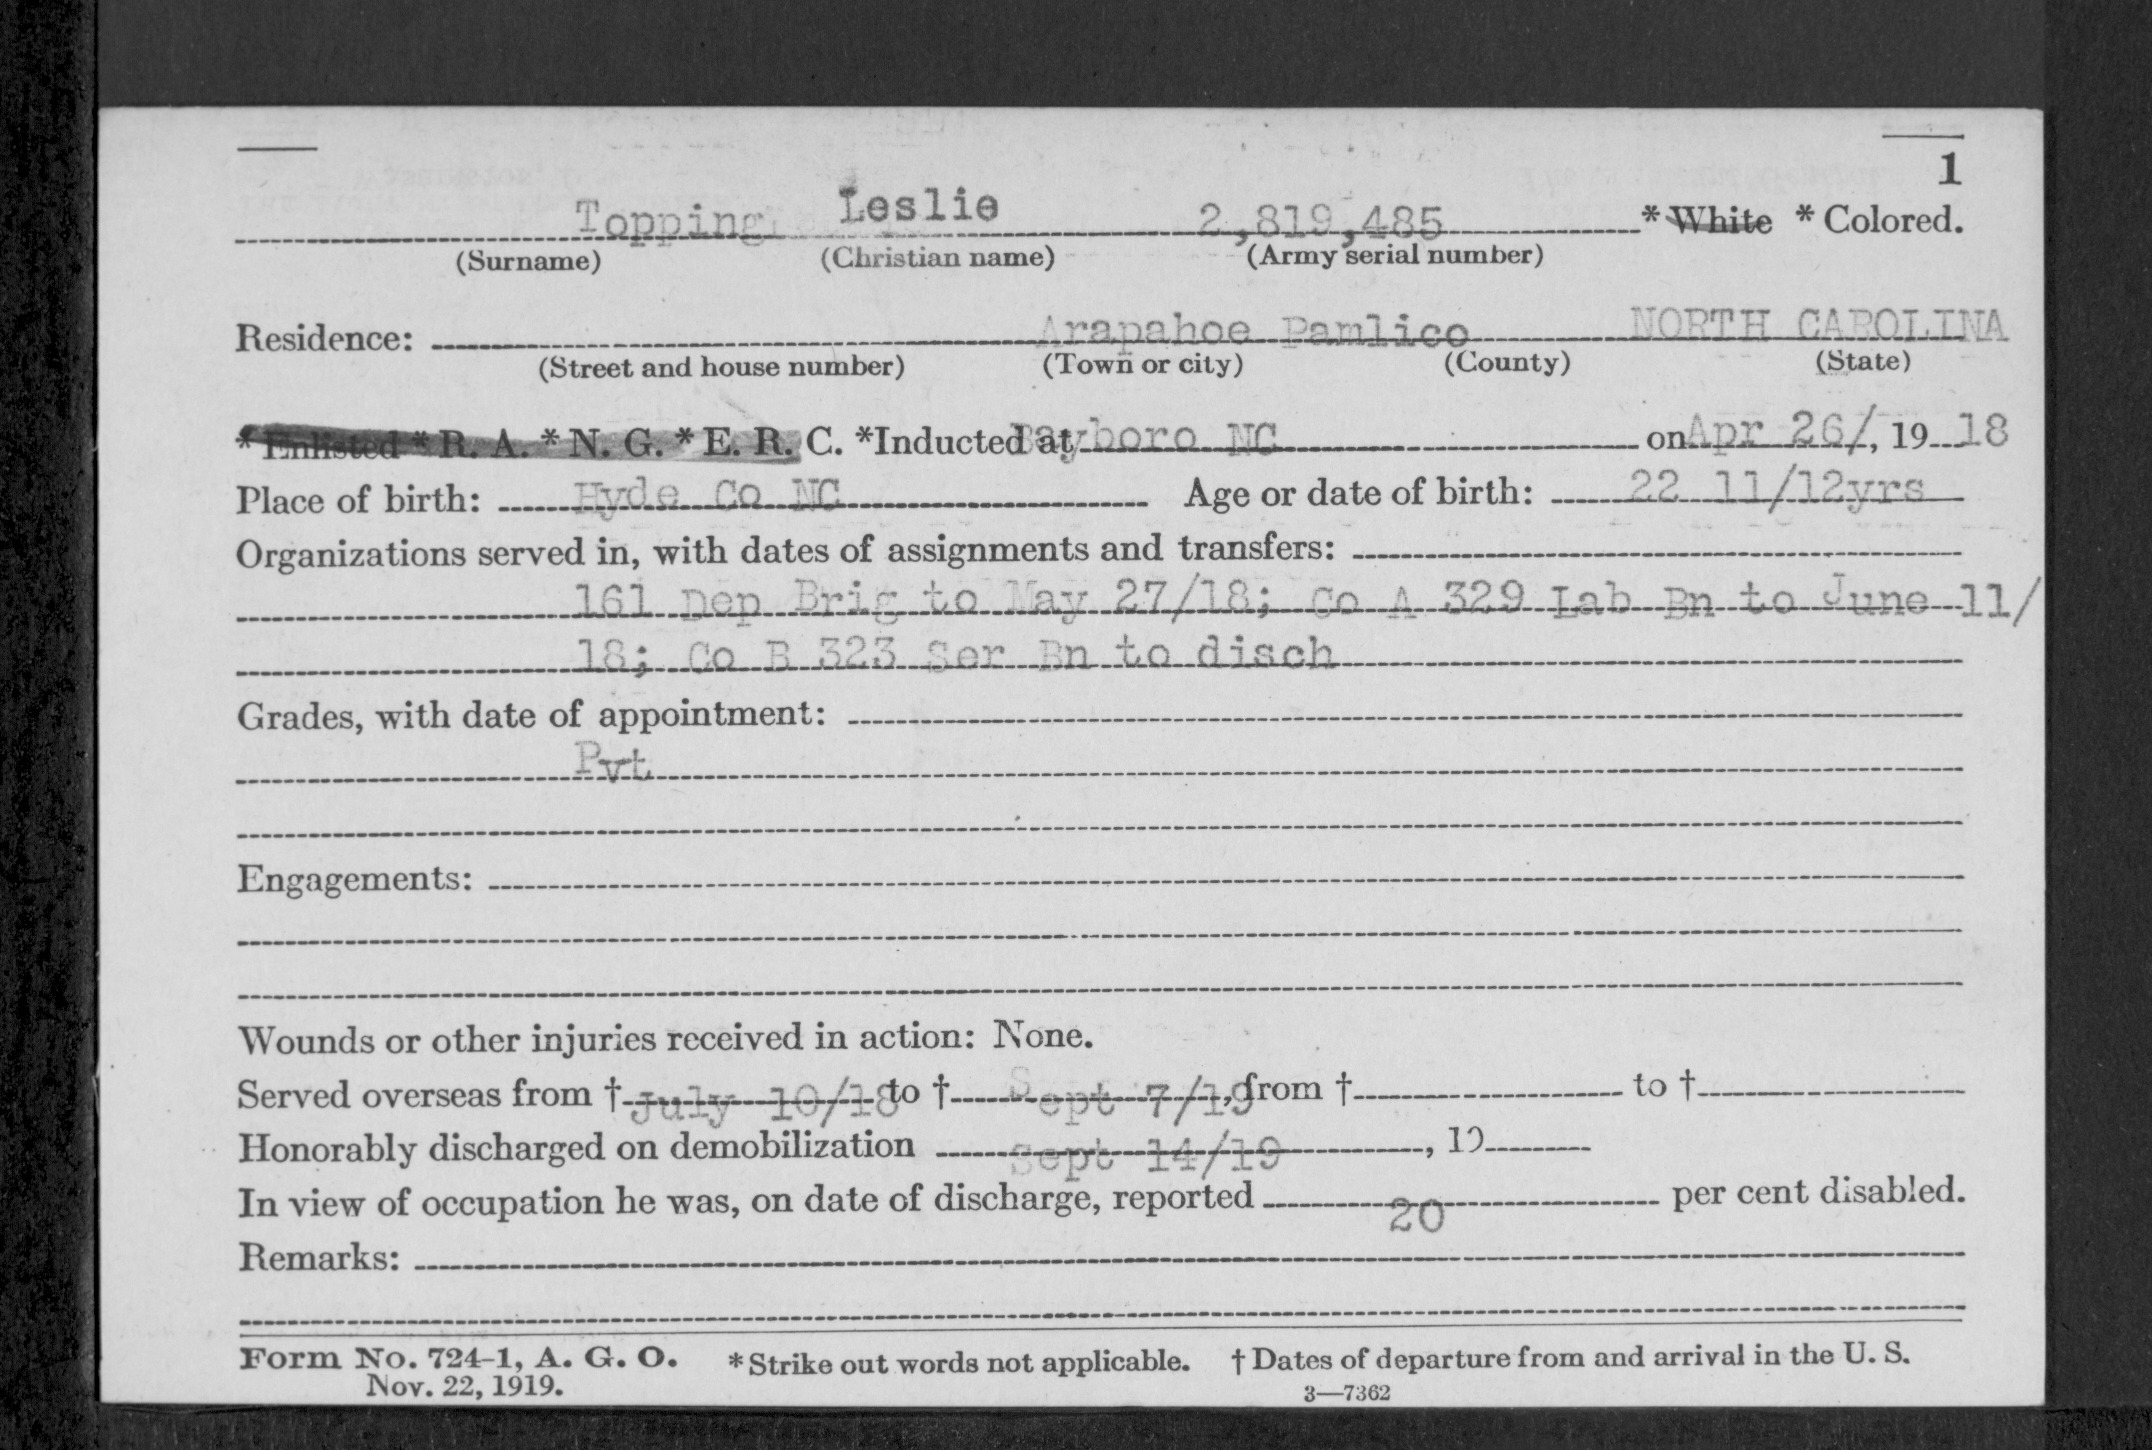 1
Topping Leslie 2,819,485 * White * Colored.
(Surname) (Christian name) (Army serial number)
Residence: Arapahoe Pamlico NORTH CAROLINA
(Street and house number) (Town or city) (County) (State)
* Enlisted * R. A. * N. G. * E. R. C. *Inducted at Bayboro NC on Apr 26/, 19 18
Place of birth: Hyde Co NC Age or date of birth: 22 11/12yrs
Organizations served in, with dates of assignments and transfers:
161 Dep Brig to May 27/18; Co A 329 Lab Bn to June 11/
18; Co B 323 Ser Bn to disch
Grades, with date of appointment:
Pvt
Engagements:
Wounds or other injuries received in action: None.
Served overseas from † July 10/18 to † Sept 7/19, from † to †
Honorably discharged on demobilization Sept 14/19, 19
In view of occupation he was, on date of discharge, reported 20 per cent disabled.
Remarks:
Form No. 724-1, A. G. O. * Strike out words not applicable. † Dates of departure from and arrival in the U. S.
Nov. 22, 1919. 3—7362